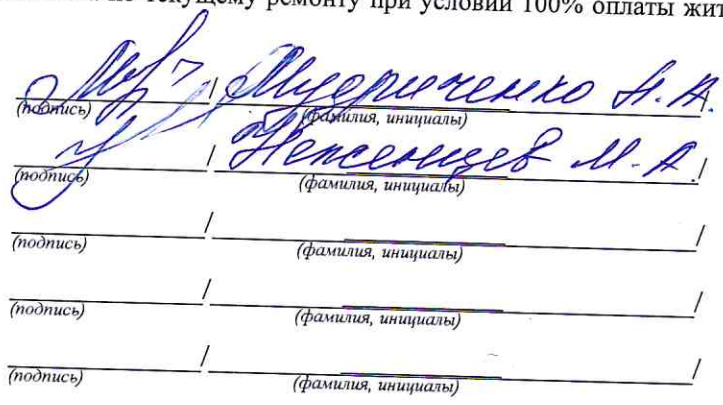 по текущему ремонту при условии 100% оплаты жит
/ Мудриченко Н.А.
(подпись) (фамилия, инициалы)
/ М.А. /
(подпись) (фамилия, инициалы)
/ /
(подпись) (фамилия, инициалы)
/ /
(подпись) (фамилия, инициалы)
/ /
(подпись) (фамилия, инициалы)